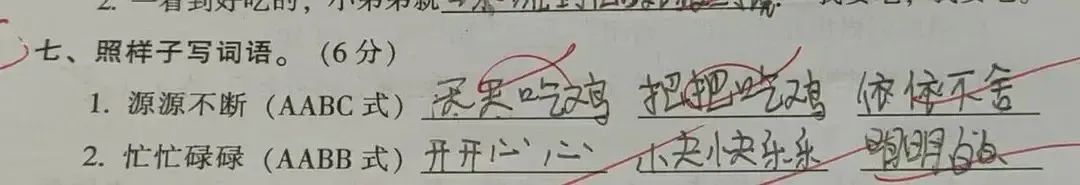 2. 一看到好吃的，小弟弟就
七、照样子写词语。（6 分）
1. 源源不断（AABC 式）天天吃鸡 把把吃鸡 依依不舍
2. 忙忙碌碌（AABB 式）开开心心 快快乐乐 明明白白